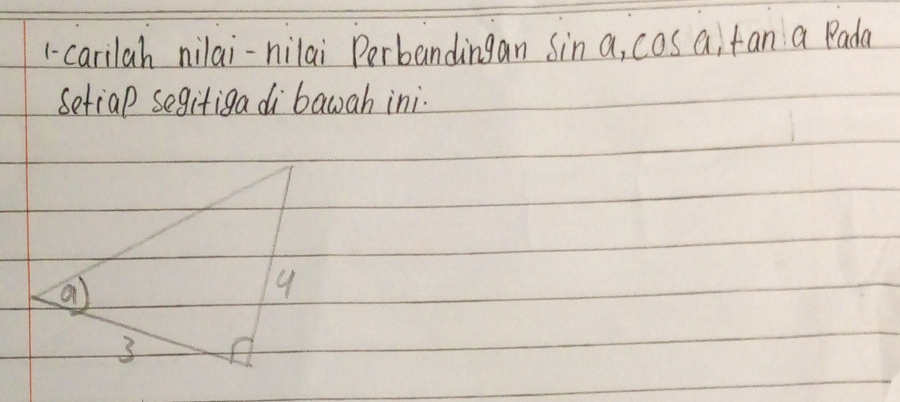 1-carilah nilai-nilai Perbandingan sin a, cos a, tan a Pada
setiap segitiga di bawah ini.
a
4
3